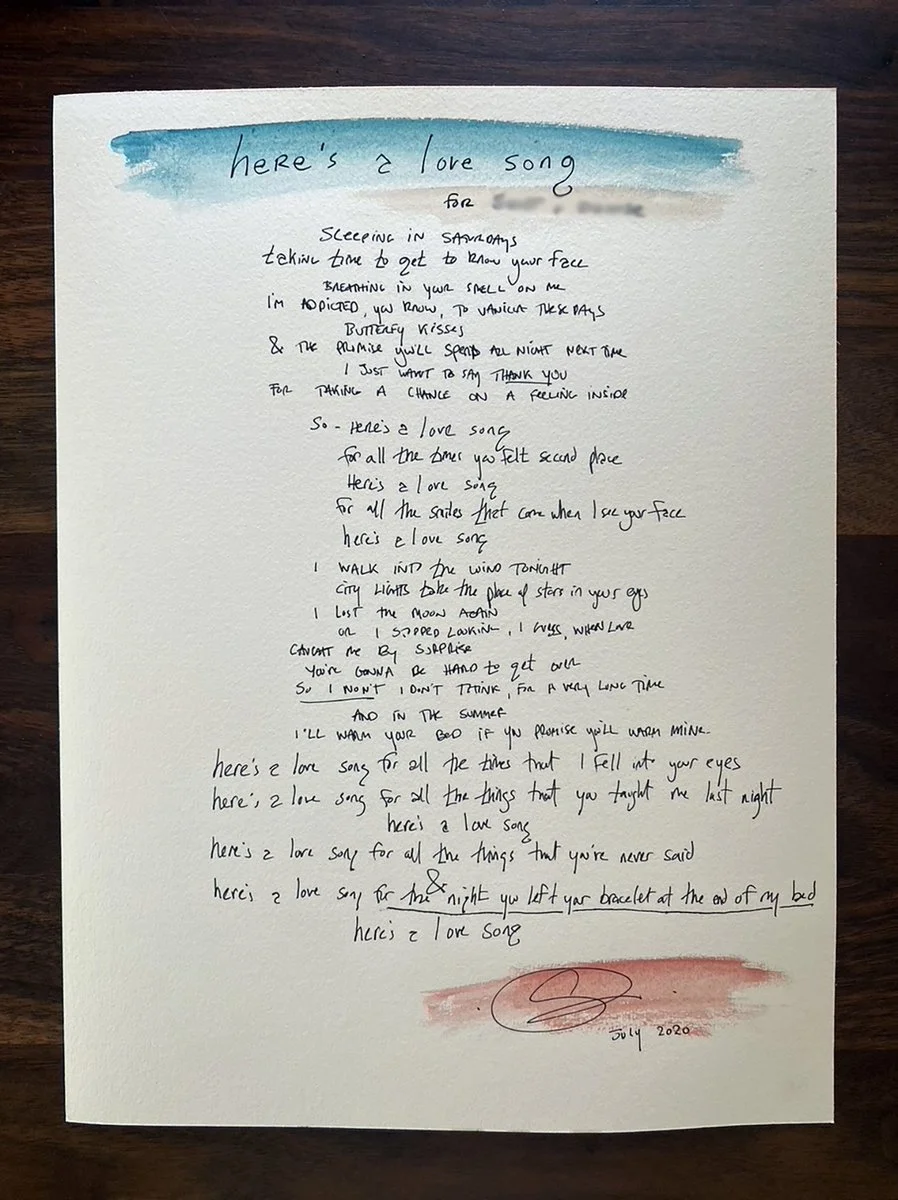 here's a love song
FOR
SLEEPING IN SATURDAYS
taking time to get to know your face
BREATHING IN YOUR SMELL ON ME
I'M ADDICTED, YOU KNOW, TO VANILLA THESE DAYS
BUTTERFY KISSES
& THE PROMISE YOU'LL SPEND ALL NIGHT NEXT TIME
I JUST WANT TO SAY THANK YOU
FOR TAKING A CHANCE ON A FEELING INSIDE
SO - HERE'S a love song
for all the times you felt second place
HERE'S a love song
for all the smiles that come when I see your face
here's a love song
I WALK INTO the WIND TONIGHT
CITY LIGHTS take the place of stars in your eyes
I LOST the MOON AGAIN
OR I STOPPED LOOKING, I GUESS, WHEN LOVE
CAUGHT ME BY SURPRISE
YOU'RE GONNA BE HARD to get over
SO I WON'T I DON'T THINK, FOR A VERY LONG TIME
AND IN THE SUMMER
I'LL WARM YOUR BED IF YOU PROMISE YOU'LL WARM MINE.
here's a love song for all the times that I fell into your eyes
here's a love song for all the things that you taught me last night
here's a love song
here's a love song for all the things that you're never said
&
here's a love song for the night you left your bracelet at the end of my bed
here's a love song
July 2020